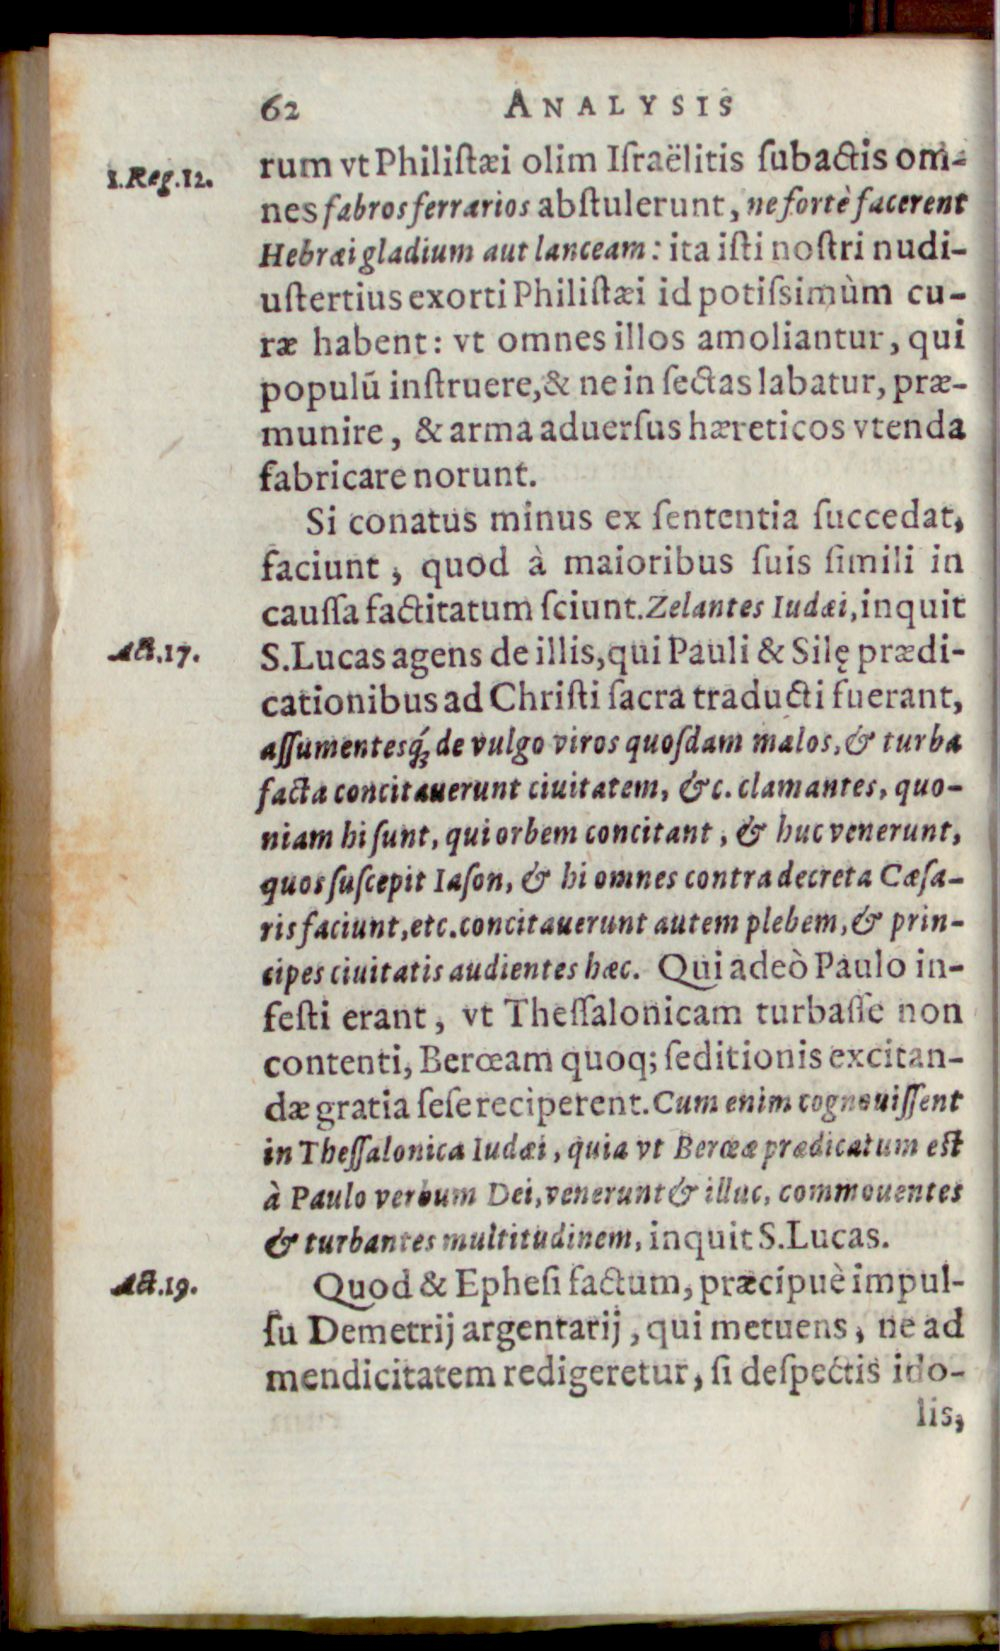 62 ANALYSIS
1.Reg.12.
rum vt Philistæi olim Iſraëlitis ſubactis om-
nes fabros ferrarios abſtulerunt, ne fortè facerent
Hebræi gladium aut lanceam: ita iſti noſtri nudi-
uſtertius exorti Philiſtæi id potiſsimùm cu-
ræ habent: vt omnes illos amoliantur, qui
populū inſtruere, & ne in ſectas labatur, præ-
munire, & arma aduerſus hæreticos vtenda
fabricare norunt.
Si conatus minus ex ſententia ſuccedat,
faciunt, quod à maioribus ſuis ſimili in
cauſſa factitatum ſciunt. Zelantes Iudæi, inquit
Act.17.
S.Lucas agens de illis, qui Pauli & Silę prædi-
cationibus ad Chriſti ſacra traducti fuerant,
aſſumentesq́; de vulgo viros quoſdam malos, & turba
facta concitauerunt ciuitatem, &c. clamantes, quo-
niam hi ſunt, qui orbem concitant, & huc venerunt,
quos ſuſcepit Iaſon, & hi omnes contra decreta Cæſa-
ris faciunt, etc. concitauerunt autem plebem, & prin-
cipes ciuitatis audientes hæc. Qui adeò Paulo in-
feſti erant, vt Theſſalonicam turbaſſe non
contenti, Berœam quoq; ſeditionis excitan-
dæ gratia ſeſe reciperent. Cum enim cognouiſſent
in Theſſalonica Iudæi, quia vt Berœæ prædicatum eſt
à Paulo verbum Dei, venerunt & illuc, commouentes
& turbantes multitudinem, inquit S.Lucas.
Act.19.
Quod & Epheſi factum, præcipuè impul-
ſu Demetrij argentarij, qui metuens, ne ad
mendicitatem redigeretur, ſi deſpectis ido-
lis,